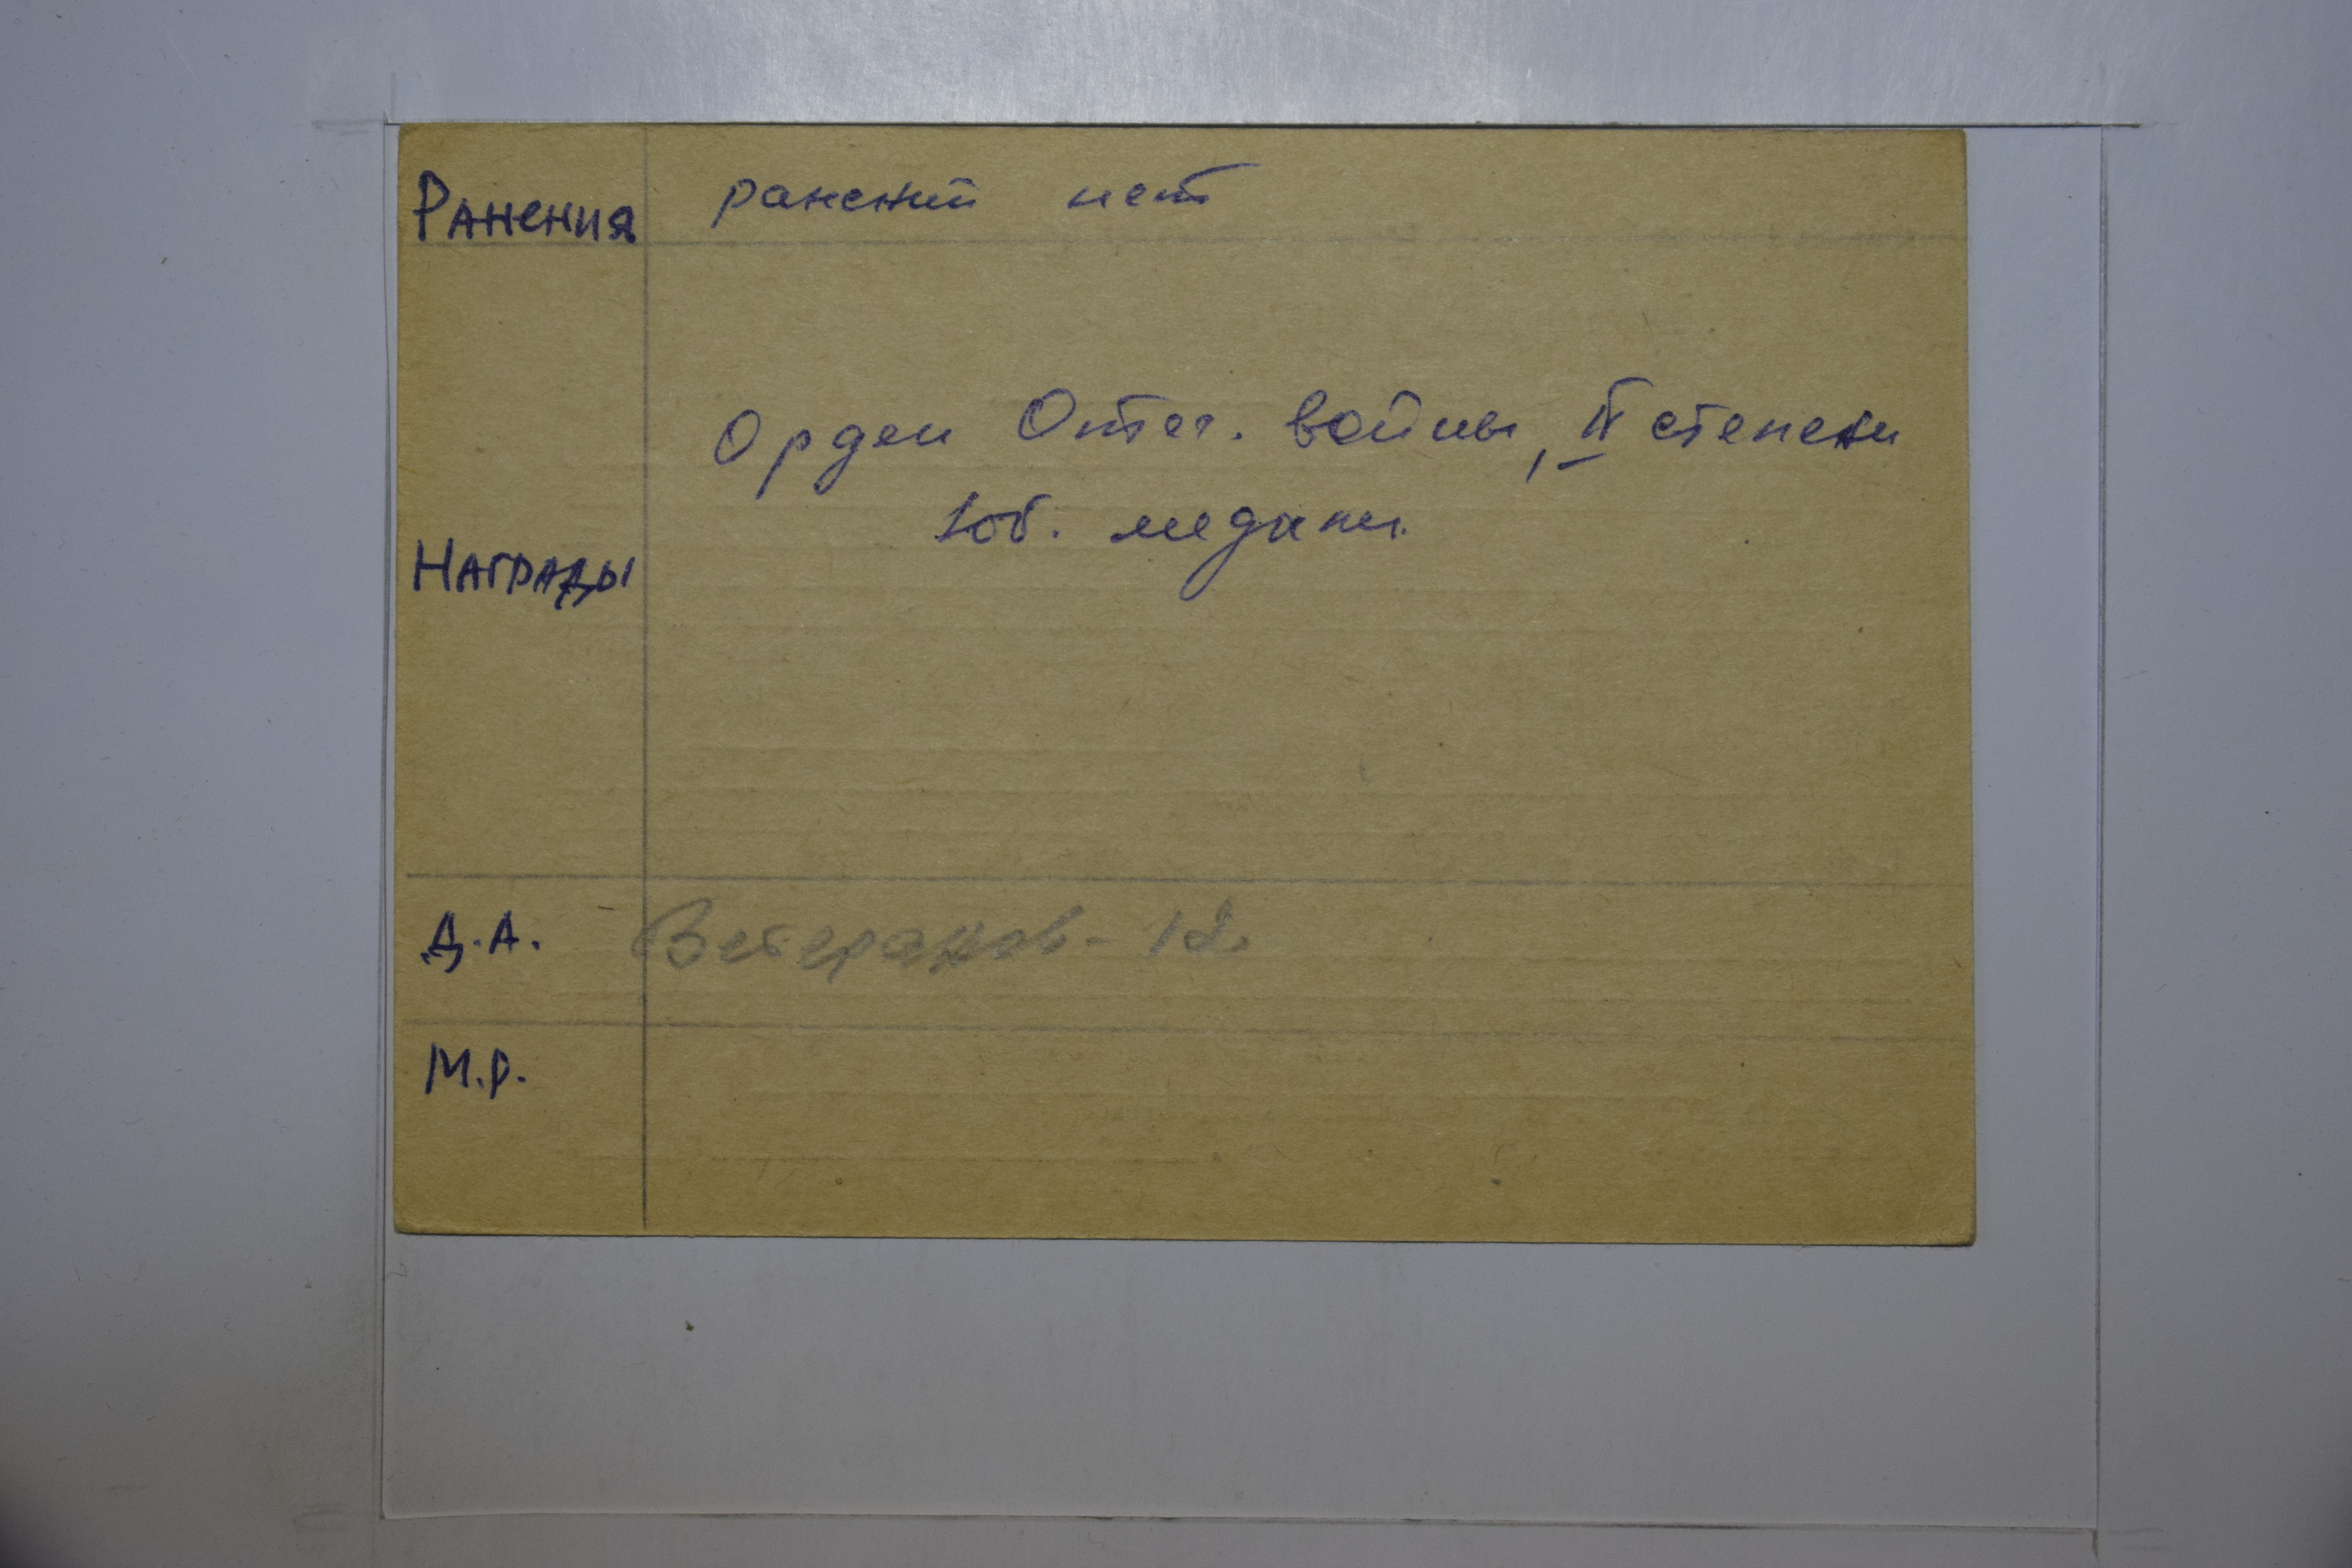 Ранения ранений нет
Орден Отеч. войны, II степени
Юб. медали.
Награды
Д.А. Ветеранов - 12
М.Р.